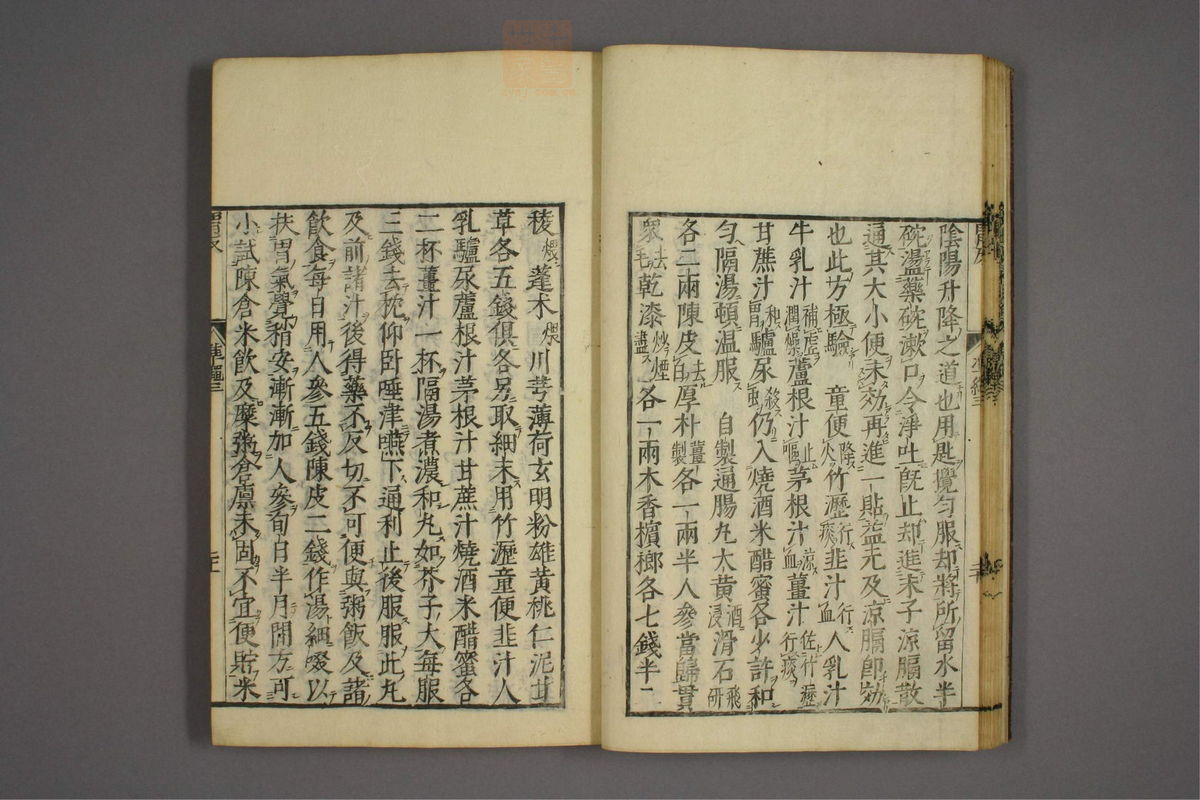 陰陽升降之道也用匙攪勻服却將所留水半
碗盪藥碗漱口令淨吐旣止却進末子涼膈散
通其大小便未効再進一貼益元及涼膈卽効
也此方極驗 童便降火竹瀝行痰韭汁行血人乳汁
牛乳汁補虛潤燥蘆根汁止嘔茅根汁涼血薑汁佐竹瀝行痰
甘蔗汁和胃驢尿殺虫仍入燒酒米醋蜜各少許和
勻隔湯頓温服 自製通腸丸大黃酒浸滑石飛研
各二兩陳皮去白厚朴薑製各一兩半人參當歸貫
衆去毛乾漆炒煙盡各一兩木香檳榔各七錢半二
稜煨蓬术煨川芎薄荷玄明粉雄黃桃仁泥甘
草各五錢俱各另取細末用竹瀝童便韭汁人
乳驢尿蘆根汁茅根汁甘蔗汁燒酒米醋蜜各
二杯薑汁一杯隔湯煮濃和丸如芥子大每服
三錢去枕仰卧唾津嚥下通利止後服服此丸
及前諸汁後得藥不反切不可便與粥飯及諸
飲食每日用人參五錢陳皮二錢作湯細啜以
扶胃氣覺稍安漸漸加人參旬日半月開方可
小試陳倉米飲及糜粥倉廩未固不宜便貯米